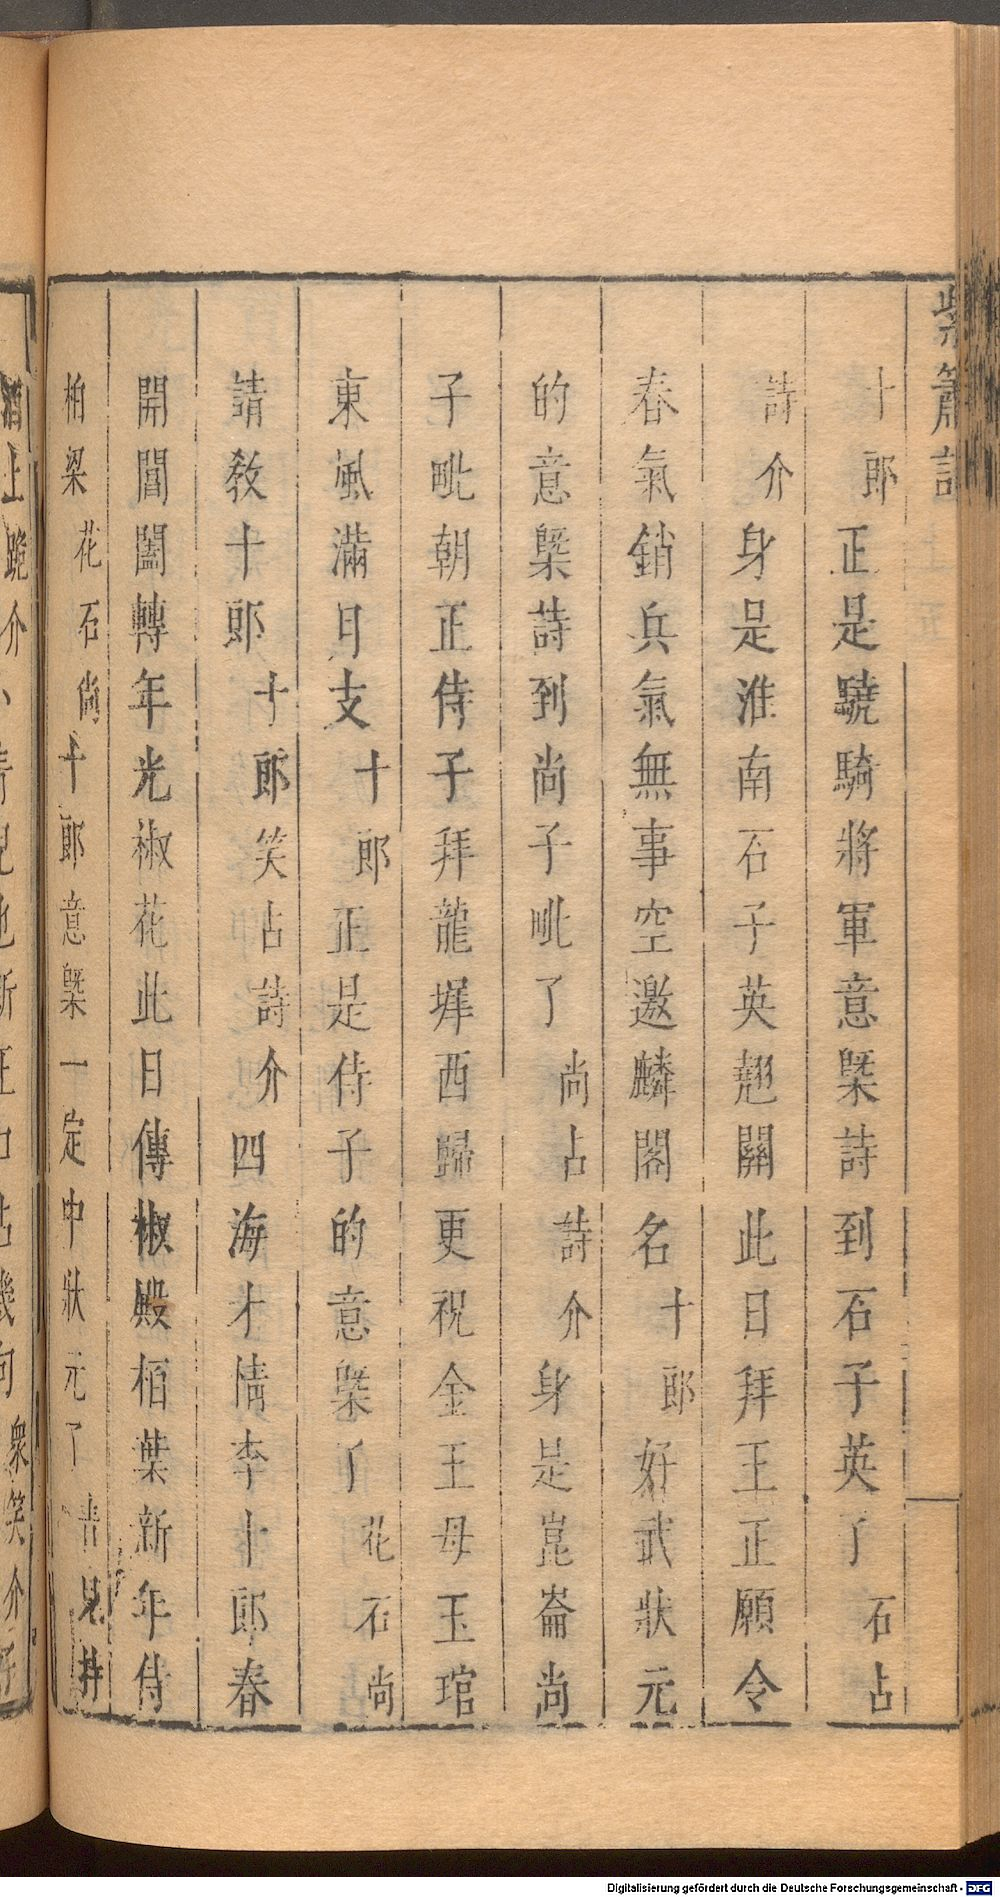 紫簫記
十郎正是驍騎將軍意槩詩到石子英了石占
詩介身是淮南石子英翹關此日拜王正願令
春氣銷兵氣無事空邀麟閣名十郎好武狀元
的意槩詩到尚子毗了尚占詩介身是崑崙尚
子毗朝正侍子拜龍墀西歸更祝金王母玉琯
東風滿月支十郎正是侍子的意槩了花石尚
請教十郎十郎笑占詩介四海才情李十郎春
開閶闔轉年光椒花此日傳椒殿栢葉新年侍
柏梁花石尚十郎意槩一定中狀元了青見持
酒上跪介
衆笑介
Digitalisierung gefördert durch die Deutsche Forschungsgemeinschaft - DFG